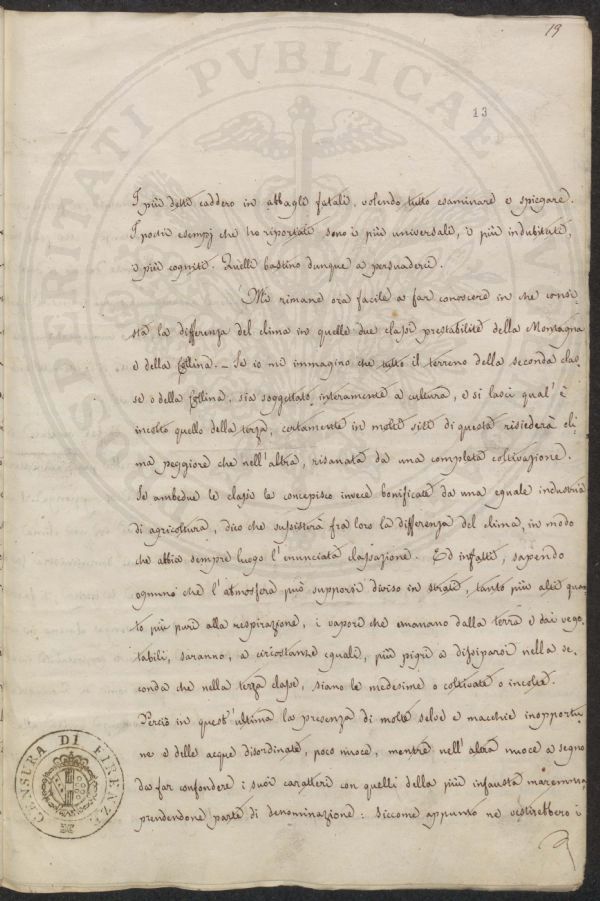 19
13
I più detti caddero in abbagli fatali, volendo tutto esaminare e spiegare.
I pochi esempj che ho riportati sono i più universali, i più indubitati,
i più cogniti. Quelli bastino dunque a persuadere.
Mi rimane ora facile a far conoscere in che consi-
sta la differenza del clima in quelle due classi prestabilite della Montagna
e della Collina. - Se io mi immagino che tutto il terreno della seconda clas-
se o della Collina, sia soggettato interamente a cultura, e si lasci qual' è
incolto quello della terza, certamente in molti siti di questa risiederà cli-
ma peggiore che nell' altra, risanata da una completa coltivazione.
Se ambedue le classi le concepisco invece bonificate da una eguale industria
di agricoltura, dico che sussisterà fra loro la differenza del clima, in modo
che abbia sempre luogo l' enunciata classazione. Ed infatti, sapendo
ognuno che l' atmosfera può supporsi diviso in strati, tanto più alti quan-
to più puri alla respirazione, i vapori che emanano dalla terra e dai vege-
tabili, saranno, a circostanze eguali, più pigri a dissiparsi nella se-
conda che nella terza classe, siano le medesime o coltivate o incolte.
Perciò in quest' ultima la presenza di molte selve e macchie inopportu-
ne e delle acque disordinate, poco nuoce, mentre nell' altra nuoce a segno
da far confondere i suoi caratteri con quelli della più infausta maremma
prendendone parte di denominazione: siccome appunto ne vestirebbero i
CENSURA DI FIRENZE
PROSPERITATI PVBLICAE